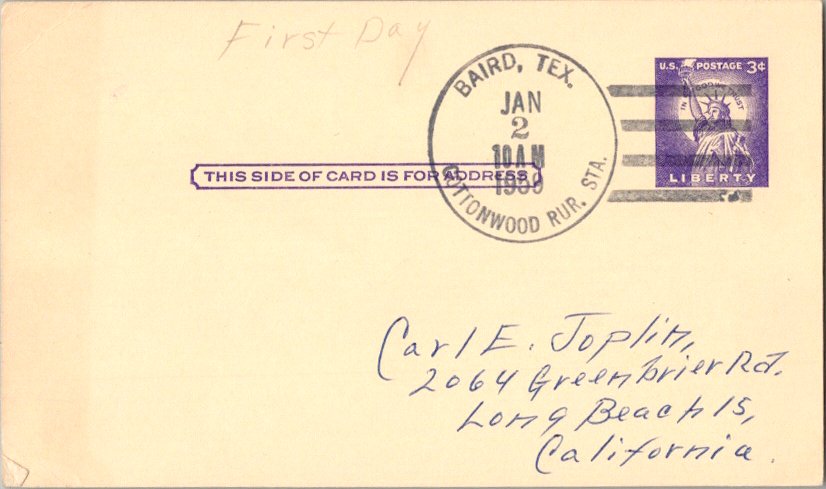 First Day
BAIRD, TEX.
JAN
2
10 AM
1959
COTTONWOOD RUR. STA.
U.S. POSTAGE 3¢
IN GOD WE TRUST
LIBERTY
THIS SIDE OF CARD IS FOR ADDRESS
Carl E. Joplin,
2064 Greenbrier Rd.
Long Beach 15,
California.